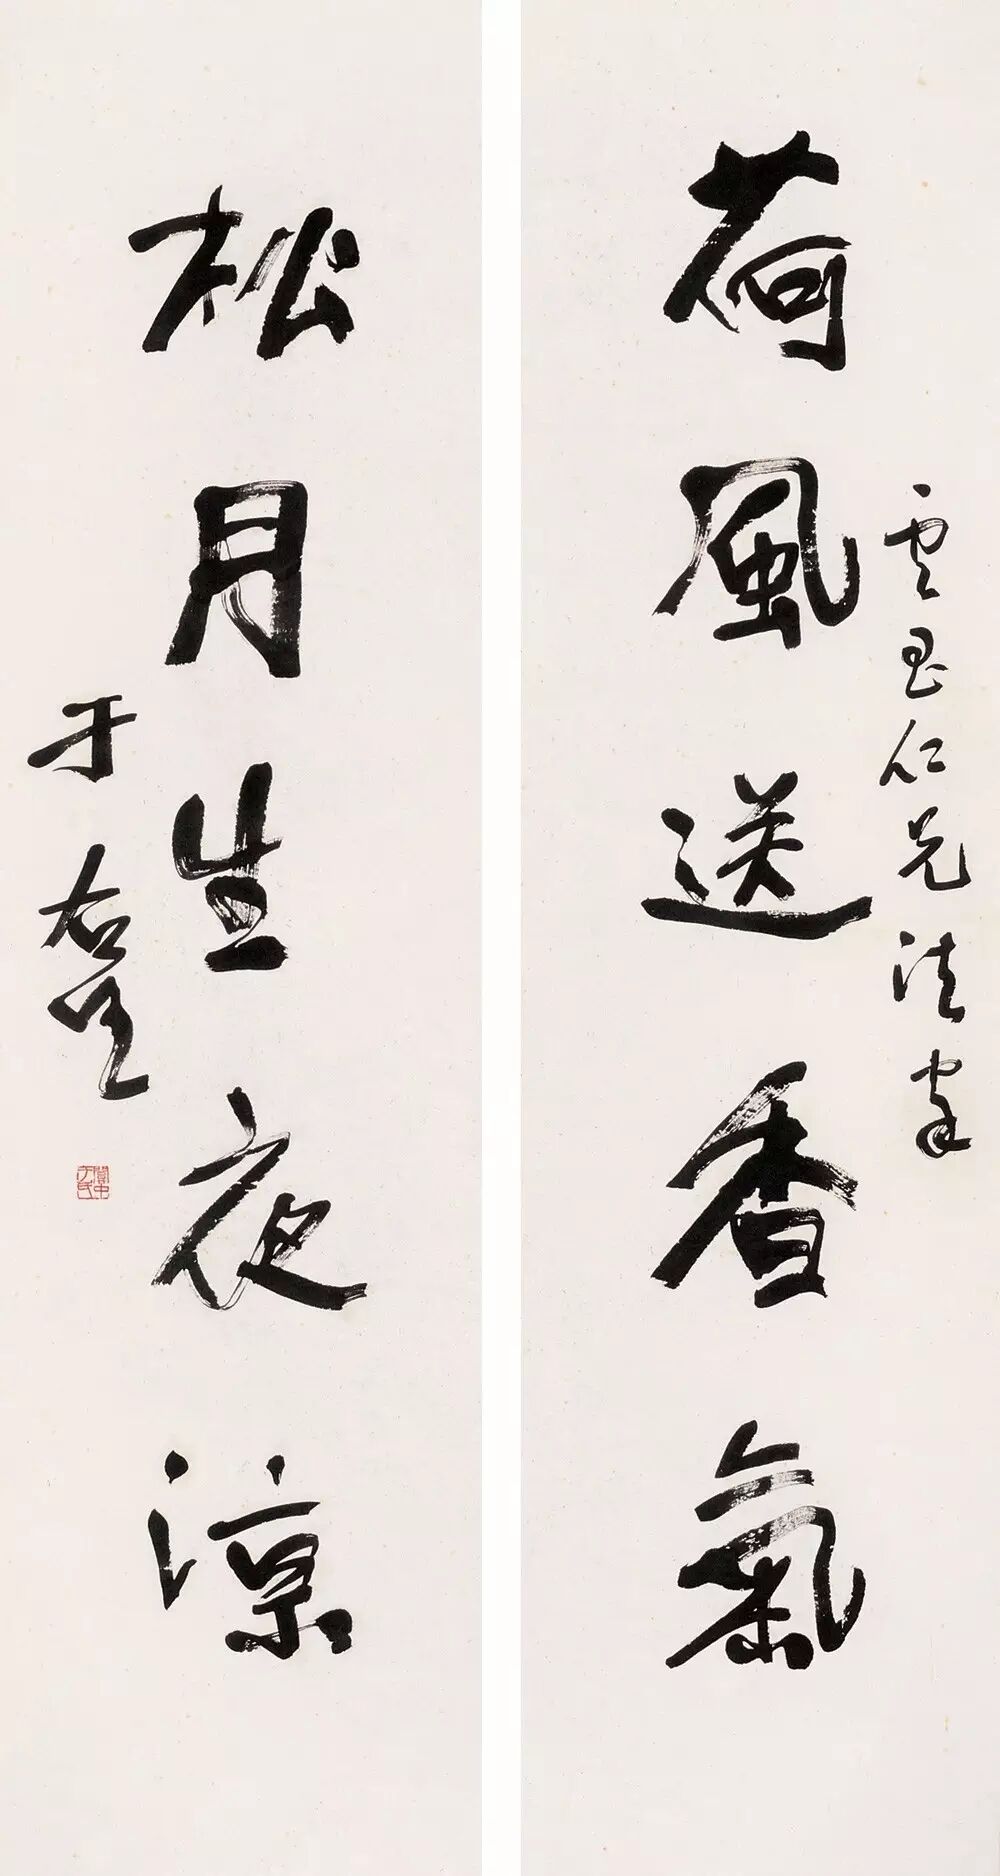 荷風送香氣
雲仁兄法家
松月生夜涼
于右任
關中于氏